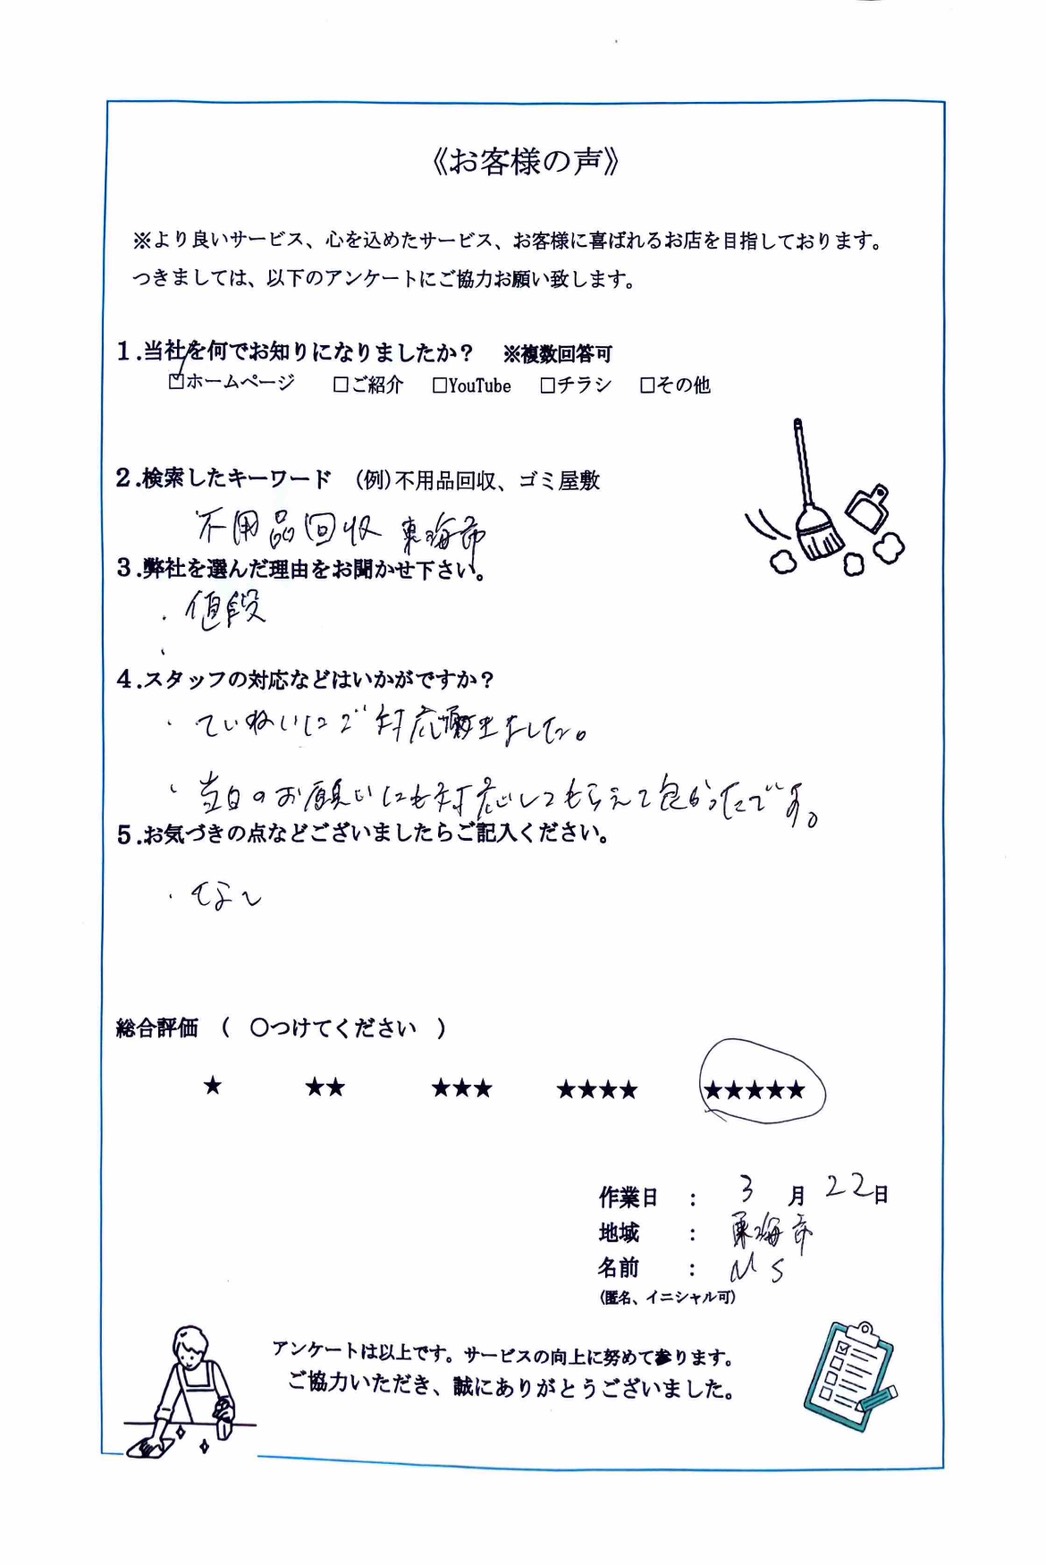 《お客様の声》
※より良いサービス、心を込めたサービス、お客様に喜ばれるお店を目指しております。
つきましては、以下のアンケートにご協力お願い致します。
1.当社を何でお知りになりましたか？　※複数回答可
☑ホームページ　□ご紹介　□YouTube　□チラシ　□その他
2.検索したキーワード　(例)不用品回収、ゴミ屋敷
不用品回収 東海市
3.弊社を選んだ理由をお聞かせ下さい。
・値段
・
4.スタッフの対応などはいかがですか？
・ていねいにご対応頂きました。
・当日のお願いにも対応してもらえて良かったです。
5.お気づきの点などございましたらご記入ください。
・なし
総合評価　(　〇つけてください　)
★　★★　★★★　★★★★　★★★★★
作業日　：　3　月　22日
地域　：　東海市
名前　：　M S
(匿名、イニシャル可)
アンケートは以上です。サービスの向上に努めて参ります。
ご協力いただき、誠にありがとうございました。